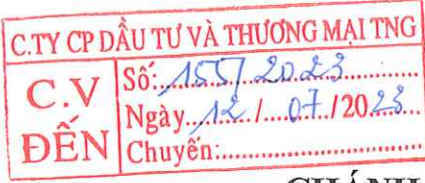 C.TY CP DẦU TƯ VÀ THƯƠNG MẠI TNG
C.V ĐẾN
Số: 155/2023
Ngày 12 / 07 /2023
Chuyển: